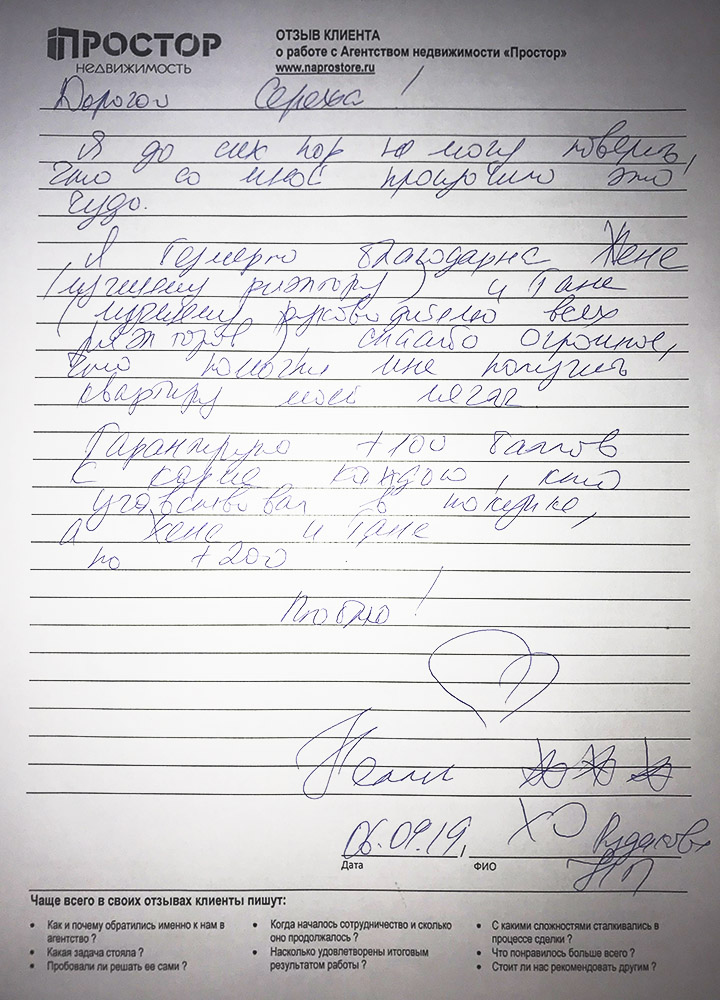 ПРОСТОР
недвижимость
ОТЗЫВ КЛИЕНТА
о работе с Агентством недвижимости «Простор»
www.naprostore.ru
Дорогой Сережа!
Я до сих пор не могу поверить,
что со мной произошло это
чудо.
Я безмерно благодарна Жене
(лучшему риэлтору) и Тане
(лучшему руководителю всех
риэлторов), спасибо огромное,
что помогли мне получить
квартиру моей мечты.
Гарантирую +100 баллов
к карме каждого, кто
участвовал в покупке,
а Жене и Тане
по +200
Люблю!
Нелли
06.09.19,
ХО Рудакова
НП
Дата
ФИО
Чаще всего в своих отзывах клиенты пишут:
• Как и почему обратились именно к нам в агентство ?
• Какая задача стояла ?
• Пробовали ли решать ее сами ?
• Когда началось сотрудничество и сколько оно продолжалось ?
• Насколько удовлетворены итоговым результатом работы ?
• С какими сложностями сталкивались в процессе сделки ?
• Что понравилось больше всего ?
• Стоит ли нас рекомендовать другим ?